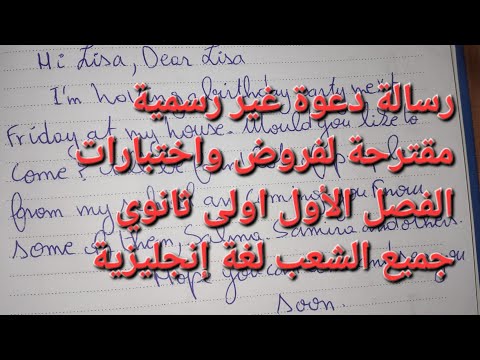 Hi Lisa, Dear Lisa
I'm having a birthday party next
Friday at my house. Would you like to
Come ?
from my school are coming. you know
some of them, Selma, Samira and others.
Hope you can you
soon.
رسالة دعوة غير رسمية
مقترحة لفروض واختبارات
الفصل الأول اولى ثانوي
جميع الشعب لغة إنجليزية